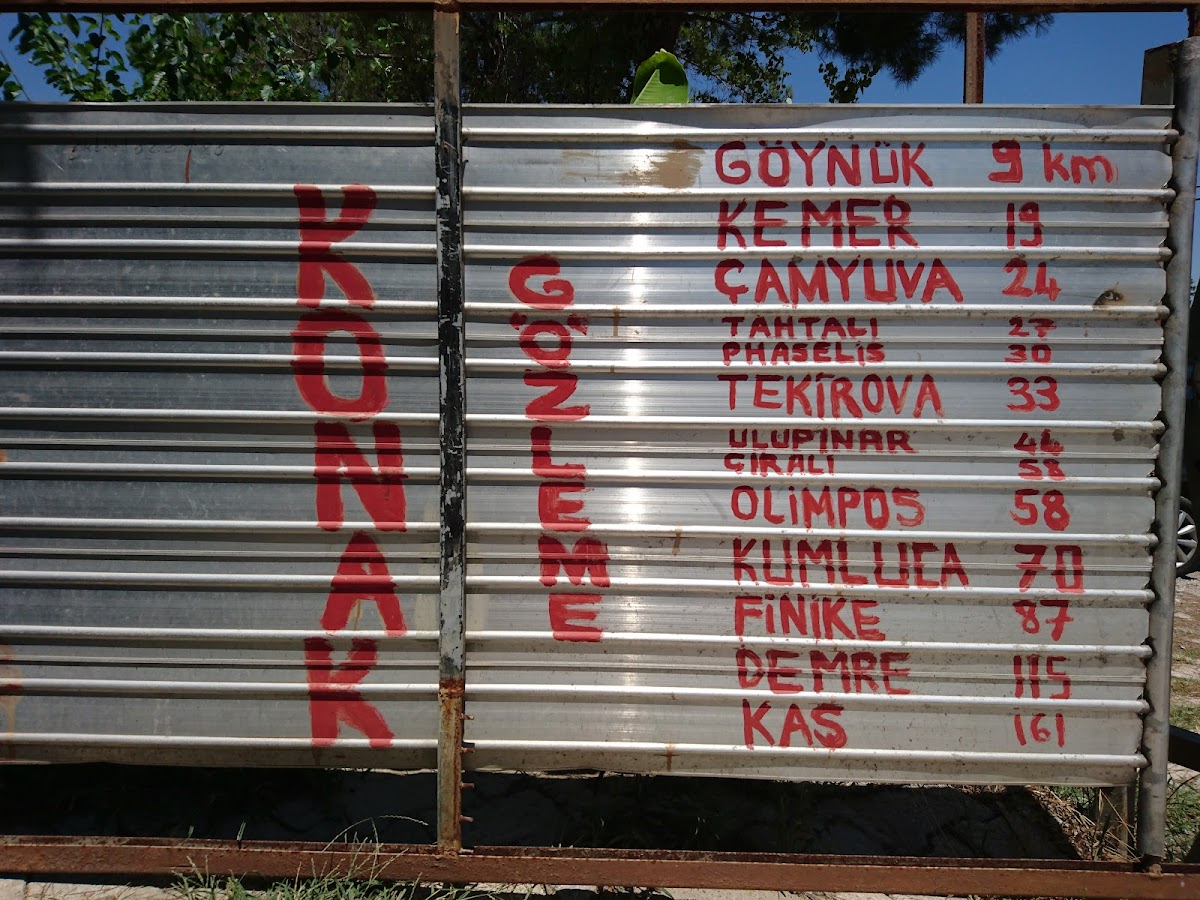 KONAK
GÖZLEME
GÖYNÜK 9 km
KEMER 19
ÇAMYUVA 24
TAHTALI 27
PHASELİS 30
TEKİROVA 33
ULUPINAR 44
ÇIRALI 58
OLİMPOS 58
KUMLUCA 70
FİNİKE 87
DEMRE 115
KAŞ 161